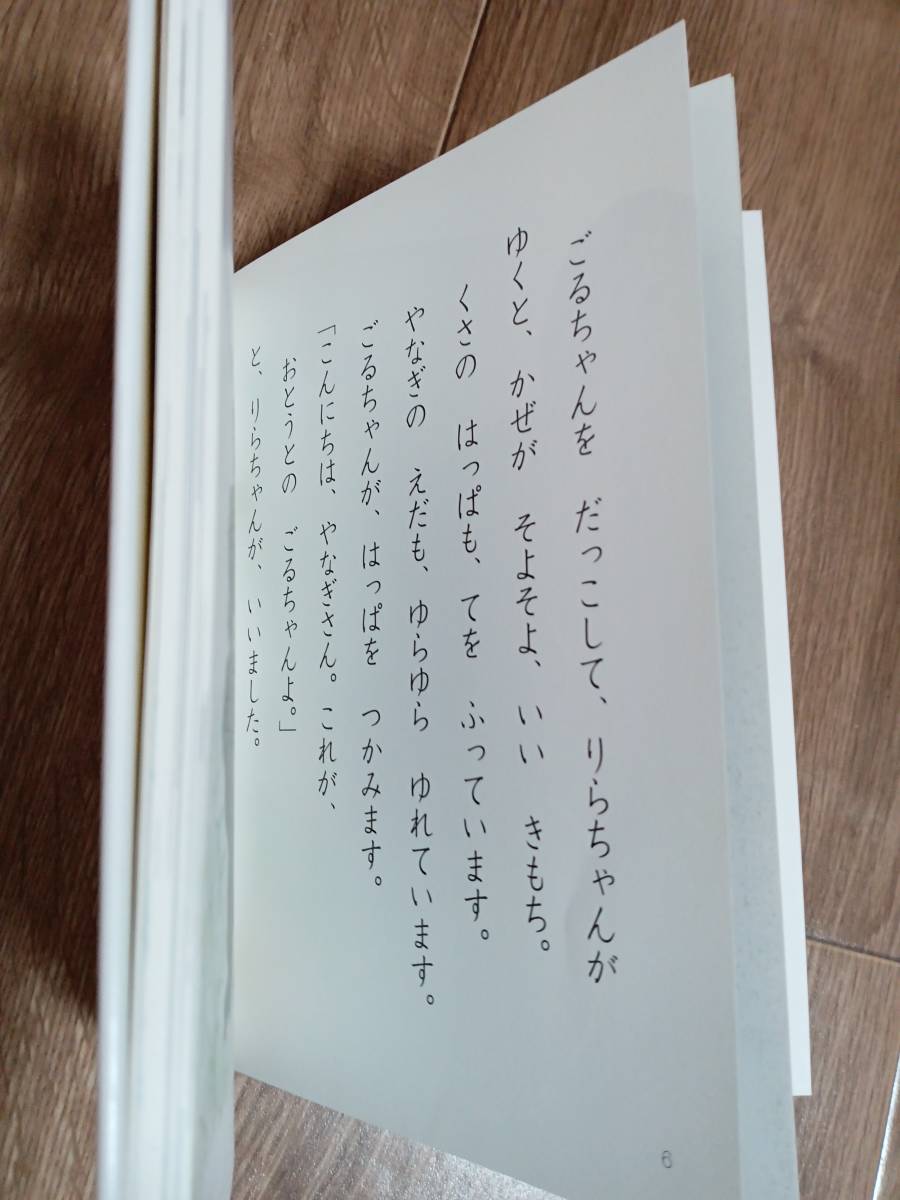 ごるちゃんを　だっこして、りらちゃんが
ゆくと、かぜが　そよそよ、いい　きもち。
くさの　はっぱも、てを　ふっています。
やなぎの　えだも、ゆらゆら　ゆれています。
ごるちゃんが、はっぱを　つかみます。
「こんにちは、やなぎさん。これが、
おとうとの　ごるちゃんよ。」
と、りらちゃんが、いいました。
6